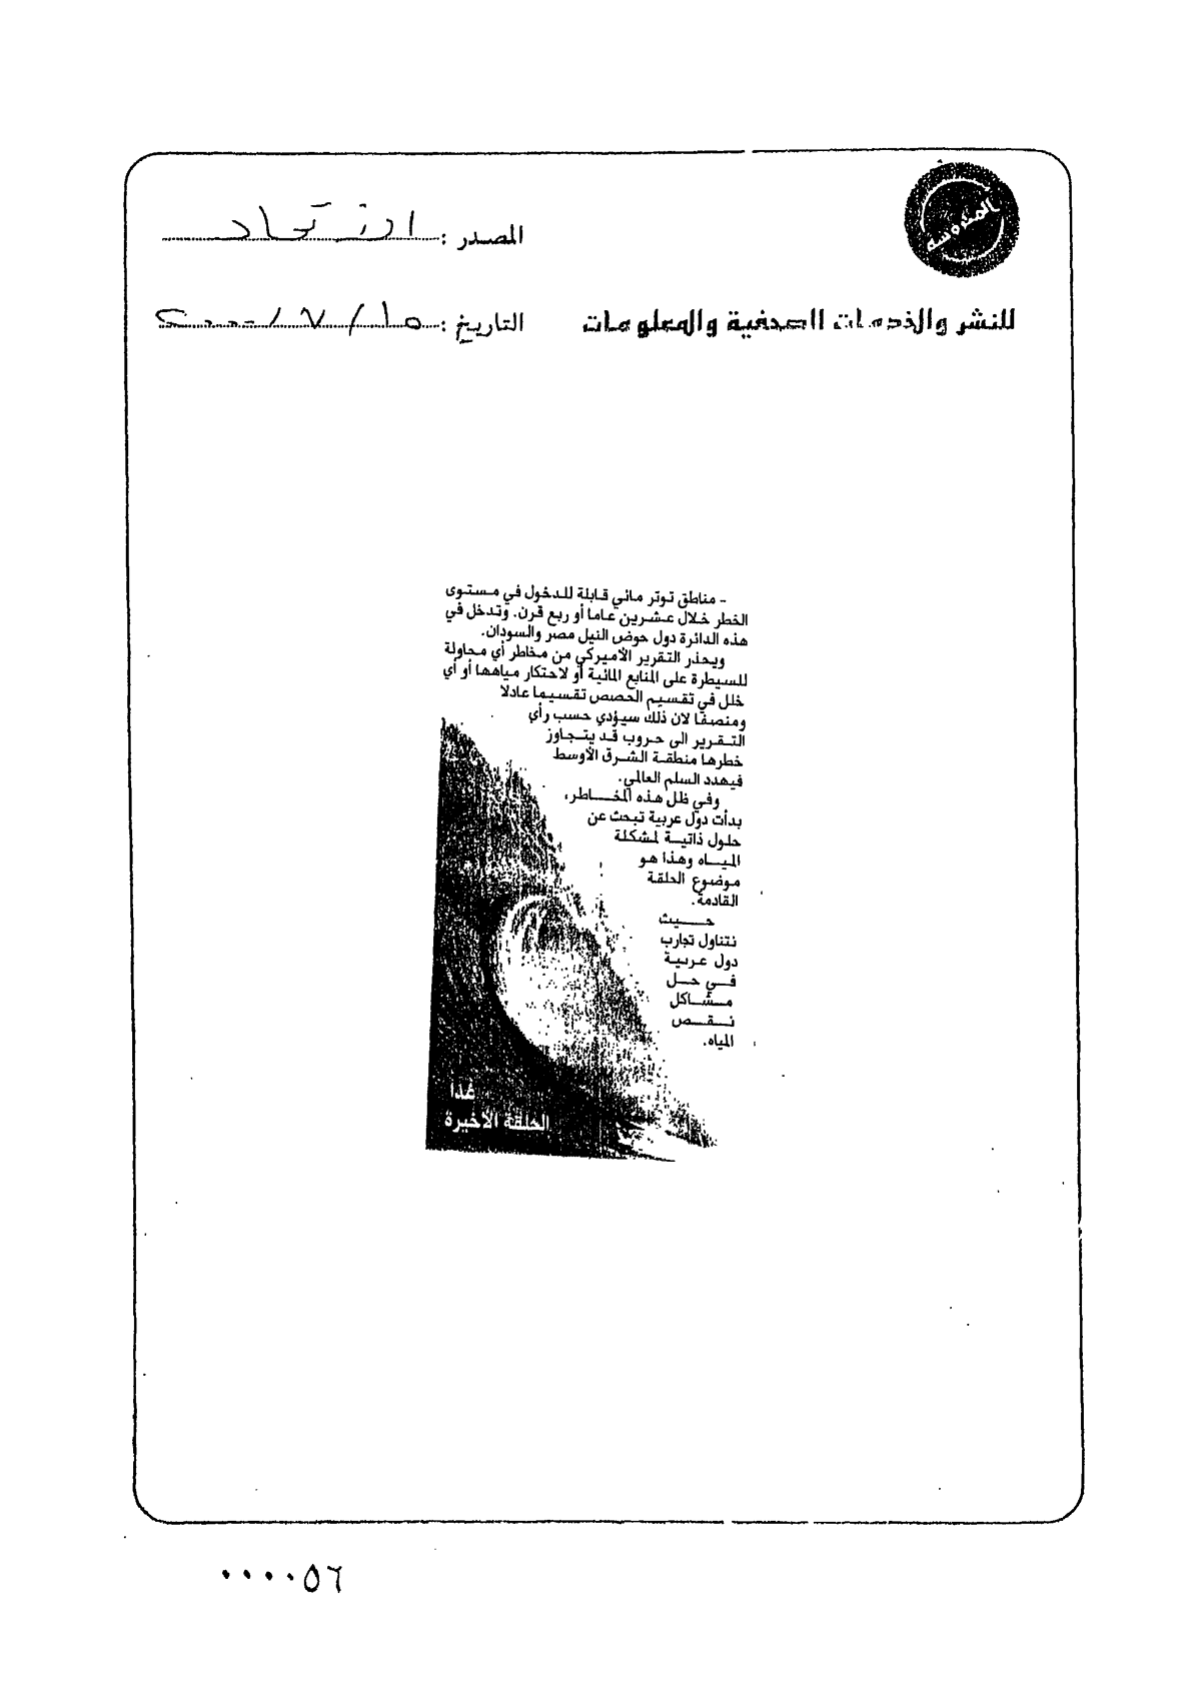 المحروسة
المصدر : الاتحاد
للنشر والخدمات الصحفية والمعلومات
التاريخ : ١٥ / ٧ / ٢٠٠٠
- مناطق توتر مائي قابلة للدخول في مستوى
الخطر خلال عشرين عاما أو ربع قرن. وتدخل في
هذه الدائرة دول حوض النيل مصر والسودان.
ويحذر التقرير الأميركي من مخاطر أي محاولة
للسيطرة على المنابع المائية أو لاحتكار مياهها أو أي
خلل في تقسيم الحصص تقسيما عادلا
ومنصفا لان ذلك سيؤدي حسب رأي
التقرير الى حروب قد يتجاوز
خطرها منطقة الشرق الأوسط
فيهدد السلم العالمي.
وفي ظل هذه المخاطر،
بدأت دول عربية تبحث عن
حلول ذاتية لمشكلة
المياه وهذا هو
موضوع الحلقة
القادمة.
حيث
نتناول تجارب
دول عربية
في حل
مشاكل
نقص
المياه.
غدا
الحلقة الأخيرة
٠٠٠٠٥٦